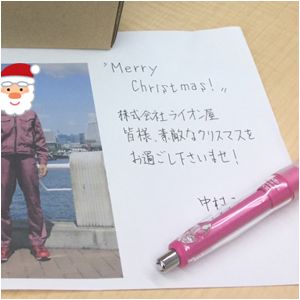 "Merry
Christmas!"
株式会社ライオン屋
皆様、素敵なクリスマスを
お過ごし下さいませ!
中村